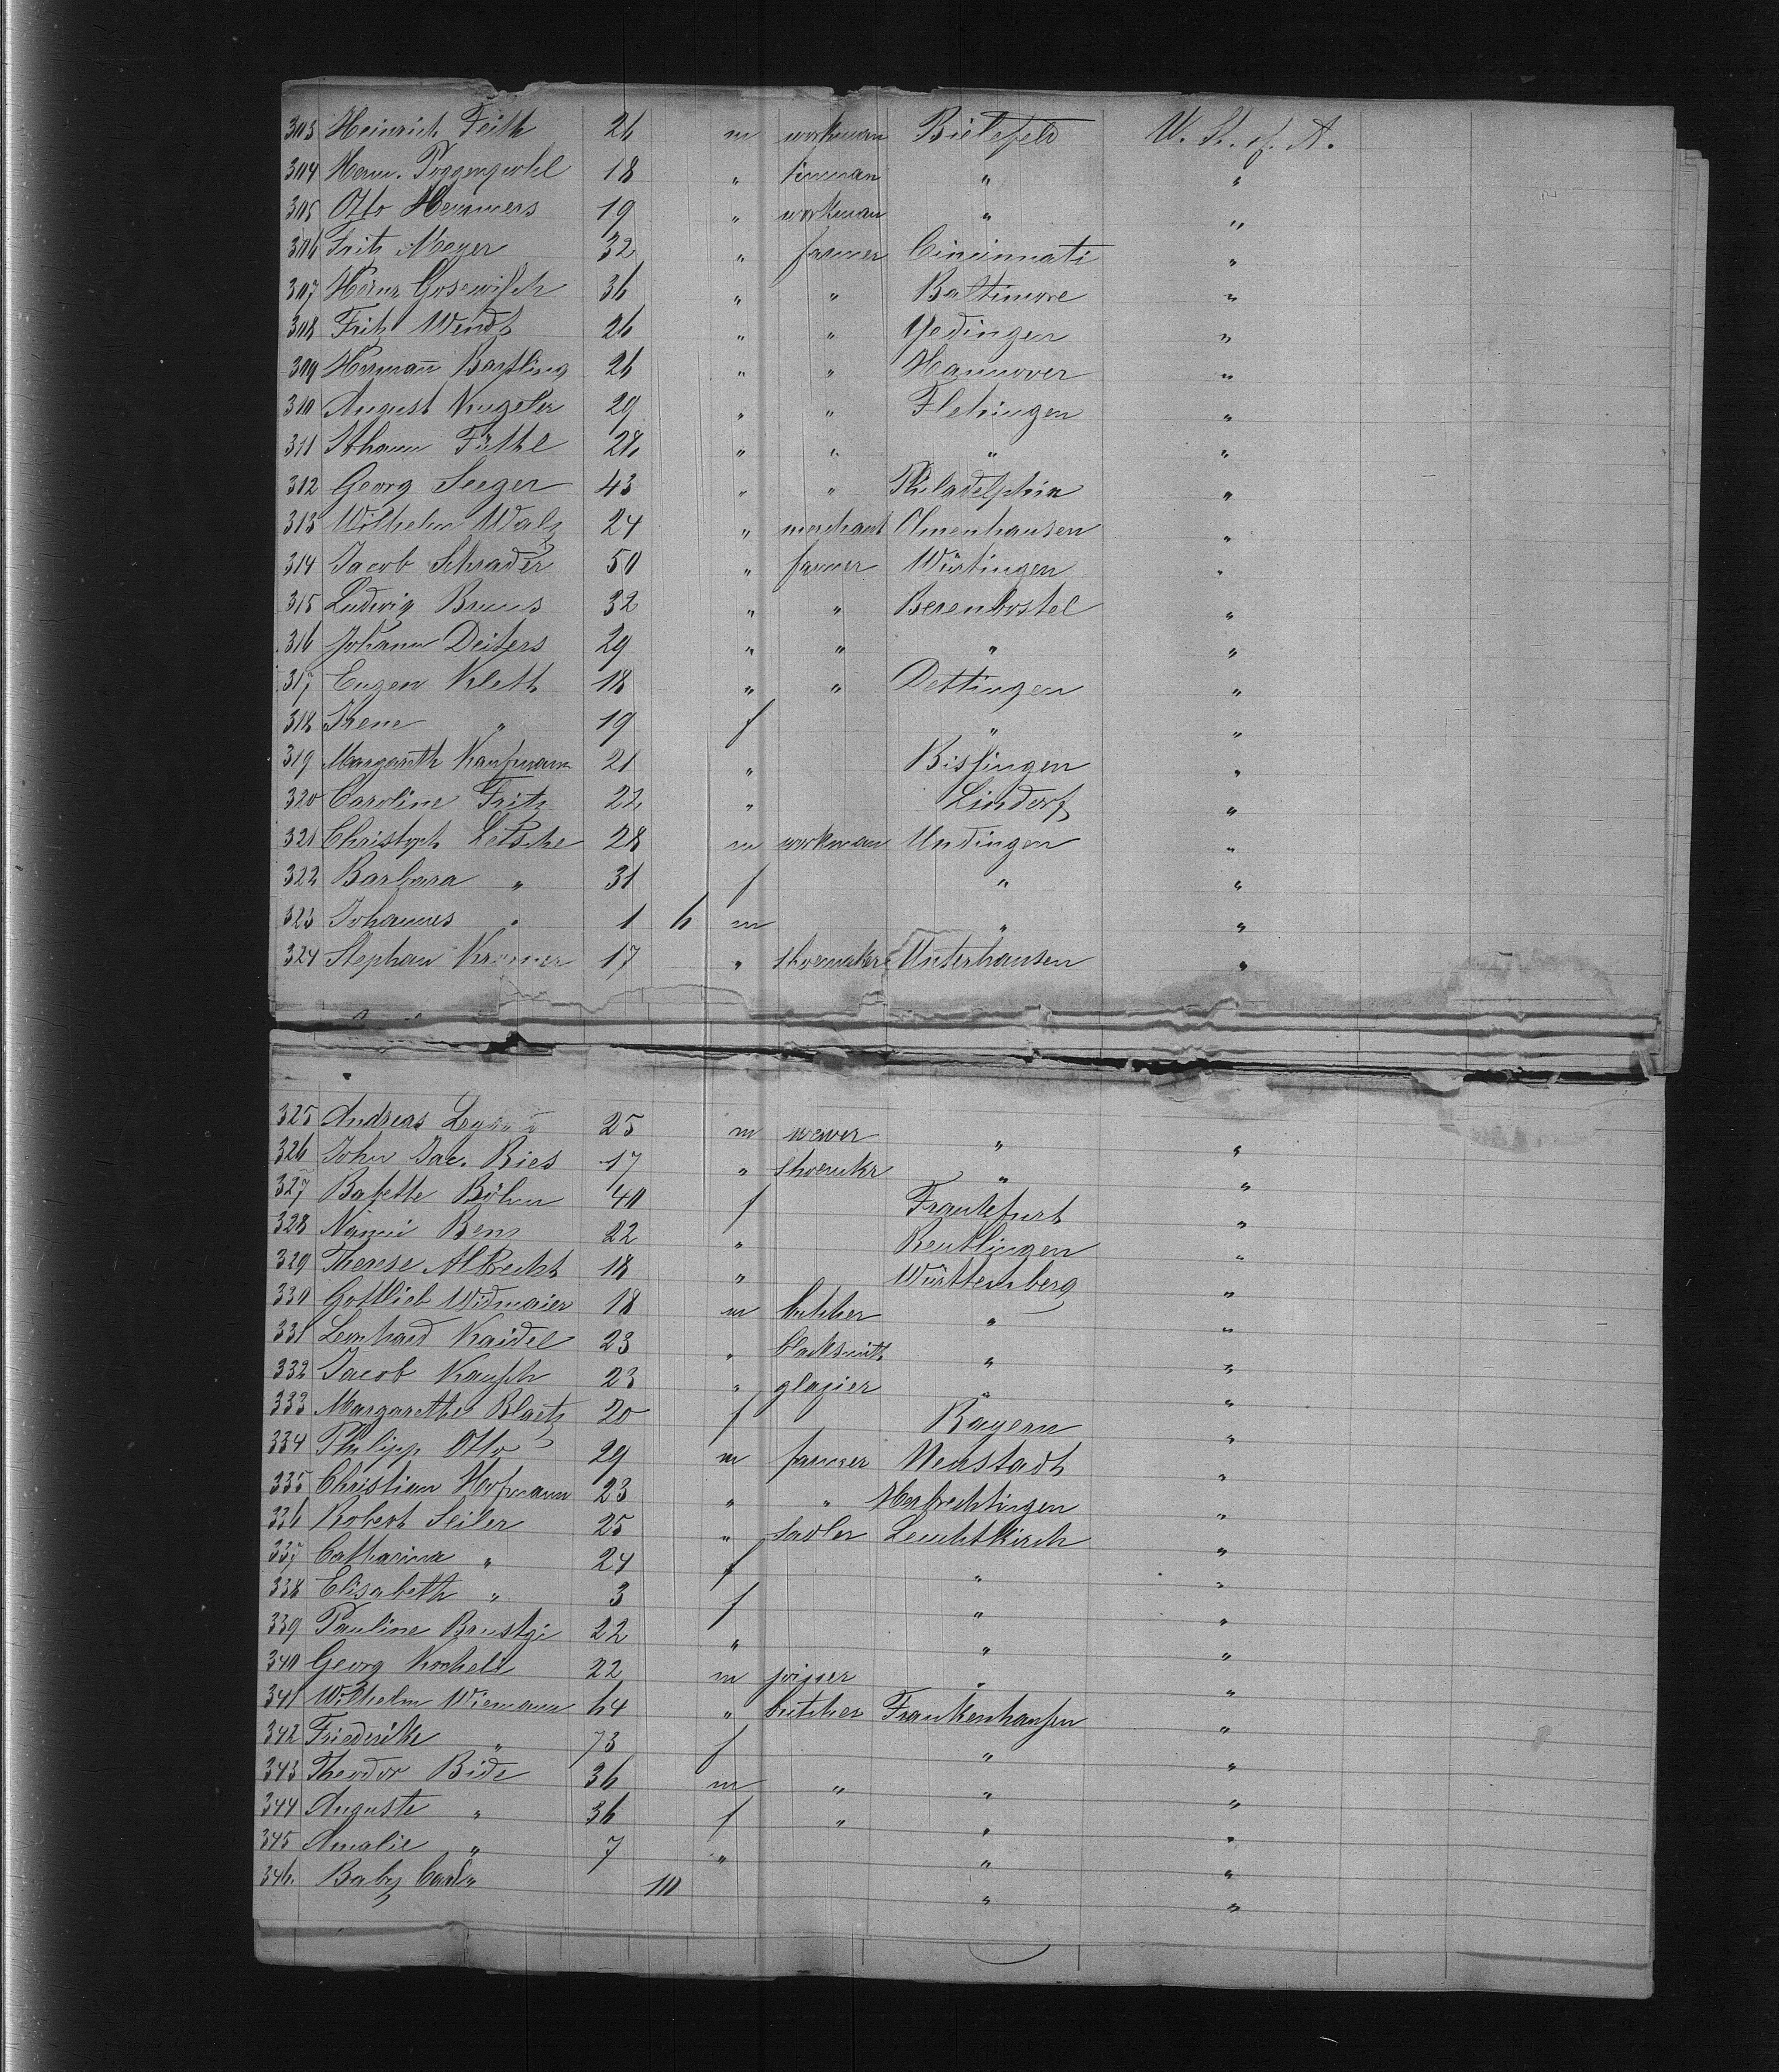 303 Heinrich Feith 26 m workman Bielefeld U. St. of. A.
304 Herm. Poggenpohl 18 " tinman " "
305 Otto Hemmers 19 " workman " "
306 Fritz Meyer 32 " farmer Cincinnati "
307 Herm. Gosewisch 36 " " Baltimore "
308 Fritz Wendt 26 " " "
309 Hermann Bartling 26 " " Hannover "
310 August Kugeler 29 " " Flehingen "
311 Johann 28 " " " "
312 Georg Seeger 43 " " Philadelphia "
313 Wilhelm Walz 24 " merchant Ohmenhausen "
314 Jacob Schrader 50 " farmer Würtingen "
315 Ludwig Bruns 32 " " Berenbostel "
316 Johann Deiters 29 " " " "
317 Eugen Kleth 18 " " Dettingen "
318 Irene " 19 f " "
319 Margareth Kaufmann 21 " Bissingen "
320 Caroline Fritz 22 " Lindorf "
321 Christoph Letsche 28 m workman Undingen "
322 Barbara " 31 f " "
323 Johannes " 1 6 m " "
324 Stephan Kramer 17 " shoemaker Unterhausen "
325 Andreas 25 m wewer " "
326 John Jac. Ries 17 " shoemkr " "
327 Babette Böhm 40 f Frankfurt "
328 Nanni Benz 22 " Reutlingen "
329 Therese Albrecht 18 " Württemberg "
330 Gottlieb Widmaier 18 m butcher " "
331 Leonhard Kaidel 23 " blacksmith " "
332 Jacob Kausch 23 " glazier " "
333 Margarethe Blaetz 20 f Bayern "
334 Philipp Otto 29 m farmer Neustadt "
335 Christian Hofmann 23 " " Herbrechtingen "
336 Robert Seiler 25 " sadler Leutkirch "
337 Catharina " 24 f " "
338 Elisabeth " 3 f " "
339 Pauline Brustgi 22 " " "
340 Georg 22 m joiner " "
341 Wilhelm Wiemann 64 " butcher Frankenhausen "
342 Friederike " 73 f " "
343 Theodor Bide 36 m " " "
344 Auguste " 36 f " " "
345 Amalie " 7 " " "
346. Baby Carl " 10 " "